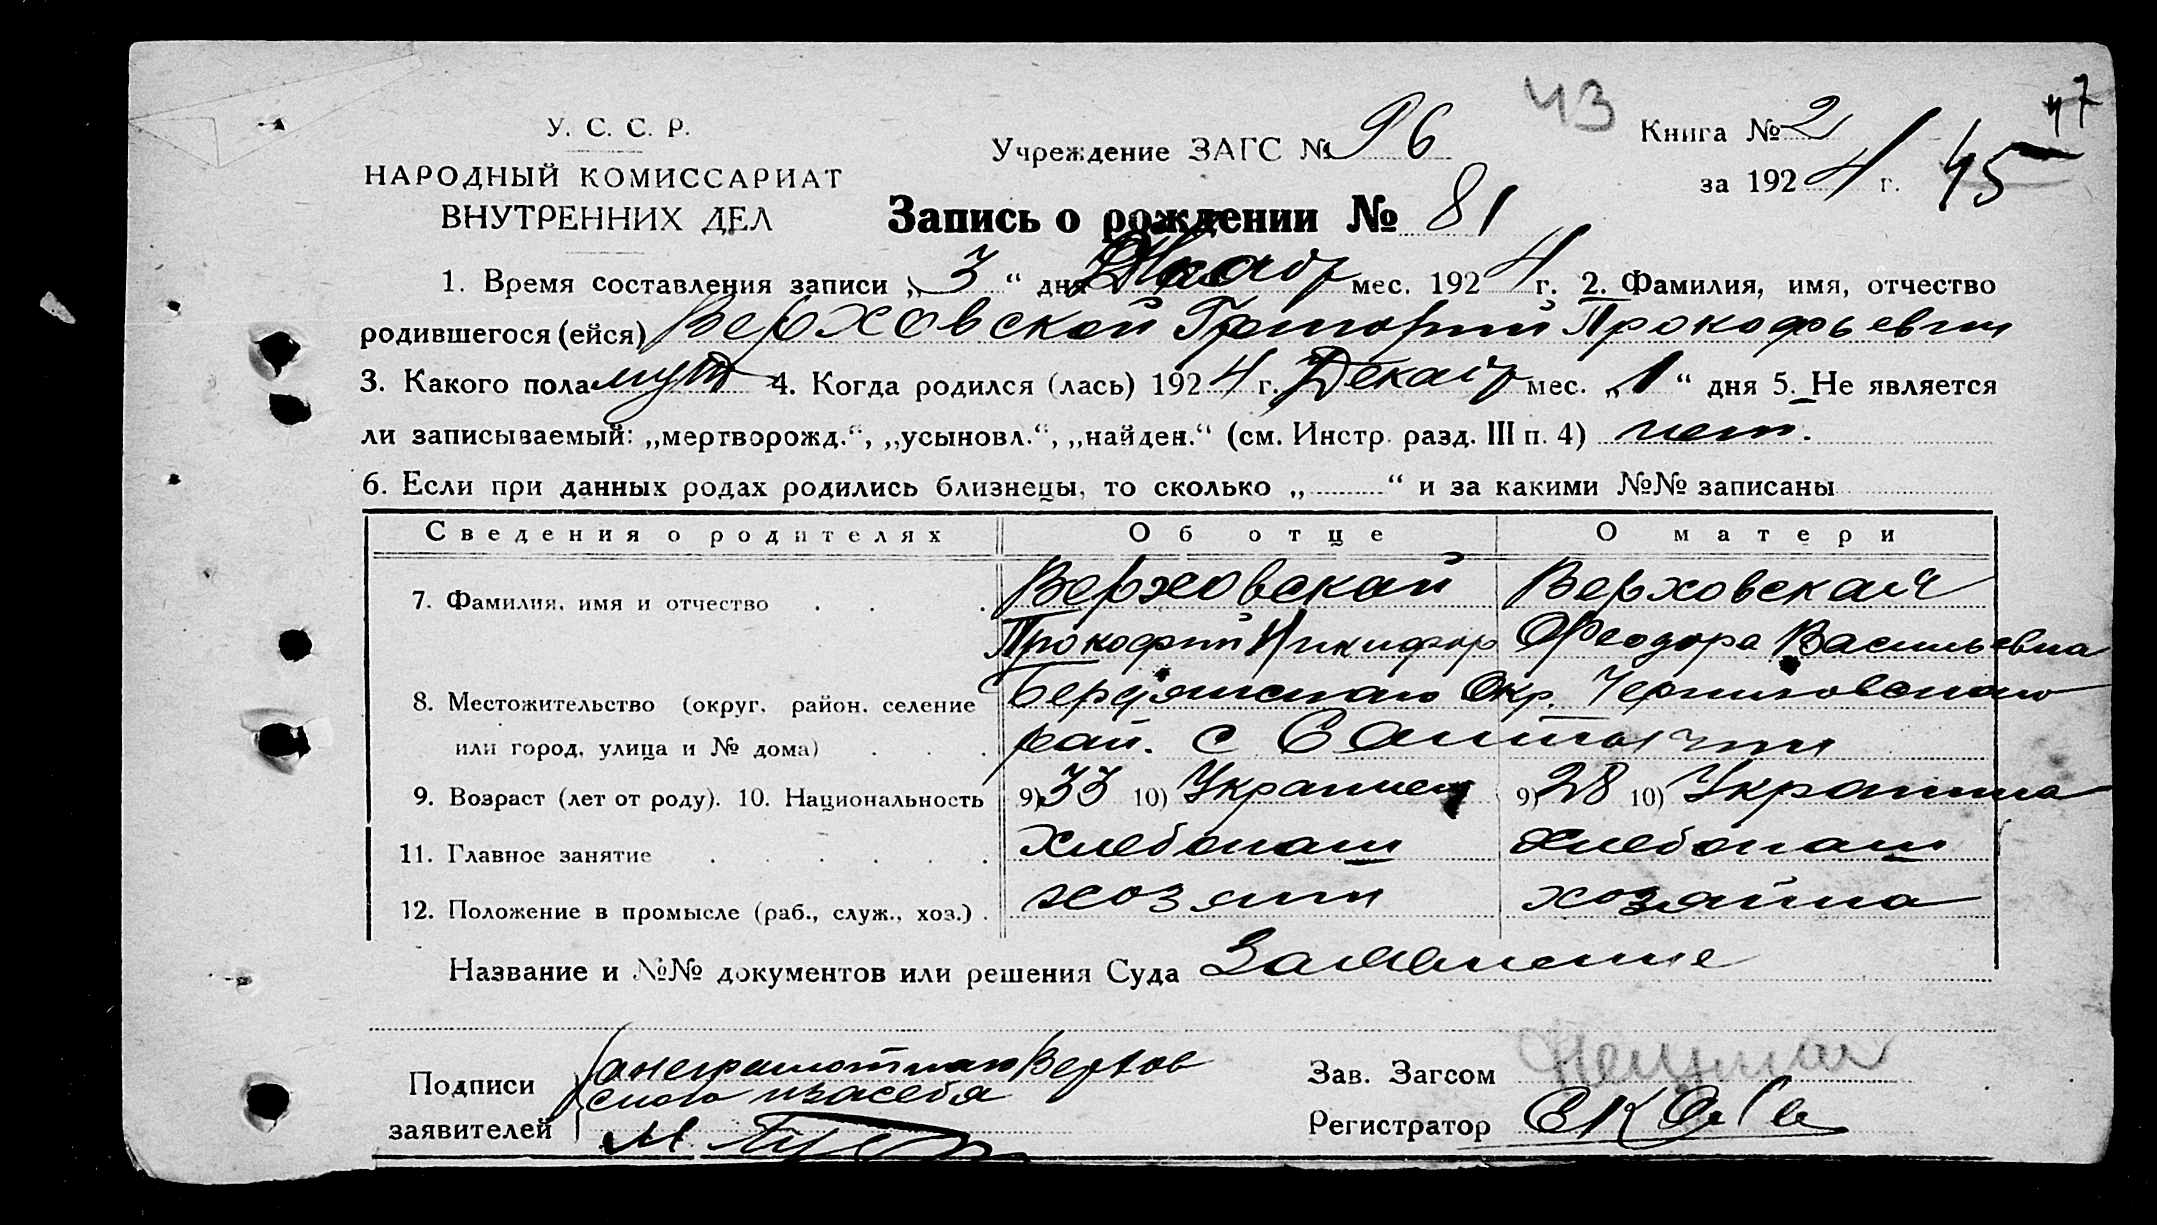 43
47
45
У. С. С. Р.
НАРОДНЫЙ КОМИССАРИАТ
ВНУТРЕННИХ ДЕЛ
Учреждение ЗАГС № 96
Книга № 2
за 1924 г.
Запись о рождении № 81
1. Время составления записи „3“ дня мес. 1924 г. 2. Фамилия, имя, отчество
родившегося (ейся) Верховской Григорий Прокофьевич
3. Какого пола муж 4. Когда родился (лась) 1924 г. Декабр мес. „1“ дня 5. Не является
ли записываемый: „мертворожд.“, „усыновл.“, „найден.“ (см. Инстр. разд. III п. 4) нет.
6. Если при данных родах родились близнецы, то сколько „ “ и за какими №№ записаны
Сведения о родителях Об отце О матери
7. Фамилия, имя и отчество Верховской Верховская
Прокофий Никифор Феодора Васильевна
8. Местожительство (округ, район, селение Бердянского Окр. Черниговского
или город, улица и № дома) рай. с
9. Возраст (лет от роду). 10. Национальность 9) 33 10) Украинец 9) 28 10) Украинка
11. Главное занятие хлебопаш хлебопаш
12. Положение в промысле (раб., служ., хоз.) хозяин хозяйка
Название и №№ документов или решения Суда Заявление
Подписи за неграмотного Верхов
ского и за себя
заявителей М.
Зав. Загсом
Регистратор